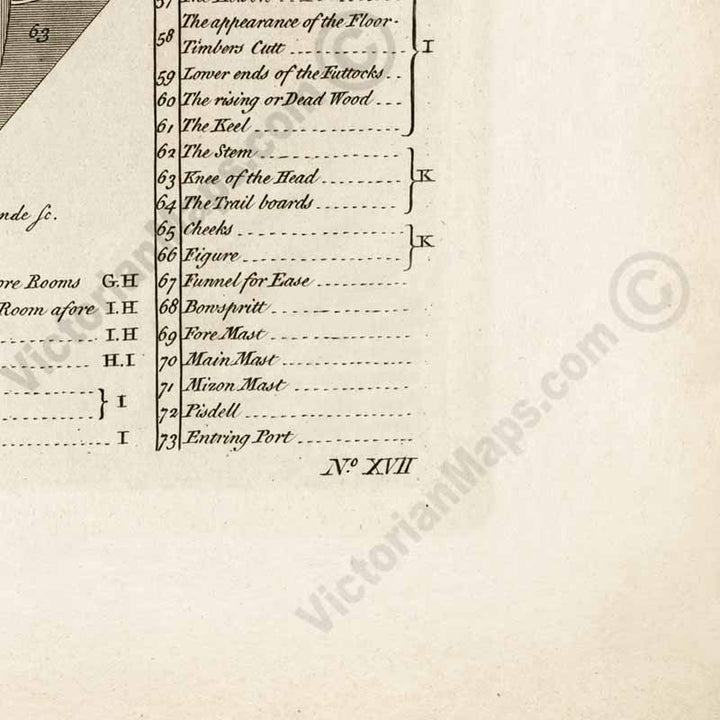 63
58 The appearance of the Floor-
Timbers Cutt I
59 Lower ends of the Futtocks
60 The rising or Dead Wood
61 The Keel
62 The Stem
63 Knee of the Head K
64 The Trail boards
65 Cheeks K
66 Figure
67 Funnel for Ease
68 Bowspritt
69 Fore Mast
70 Main Mast
71 Mizon Mast
72 Pisdell
73 Entring Port
No. XVII
nde sc.
ore Rooms G.H
Room afore I.H
I.H
H.I
I
I
VictorianMaps.com ©
VictorianMaps.com ©